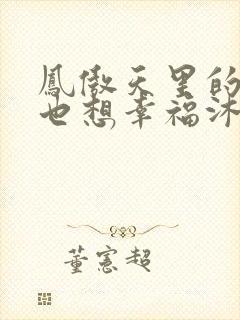 鳳傲天里的
也想幸福沐
董憲超